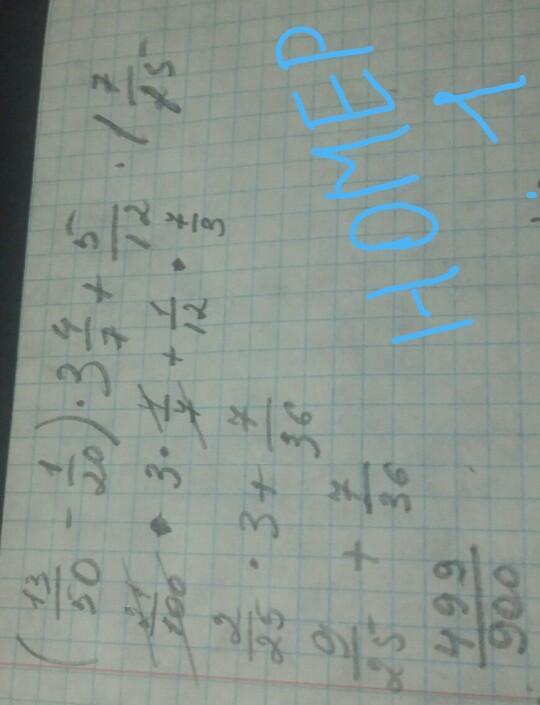 (13/50 - 1/20) · 3 4/7 + 5/12 · 1 7/25
21/100 · 3 · 1/4 + 1/12 · 7/3
2/25 · 3 + 7/36
9/25 + 7/36
499/900
НОМЕР
1